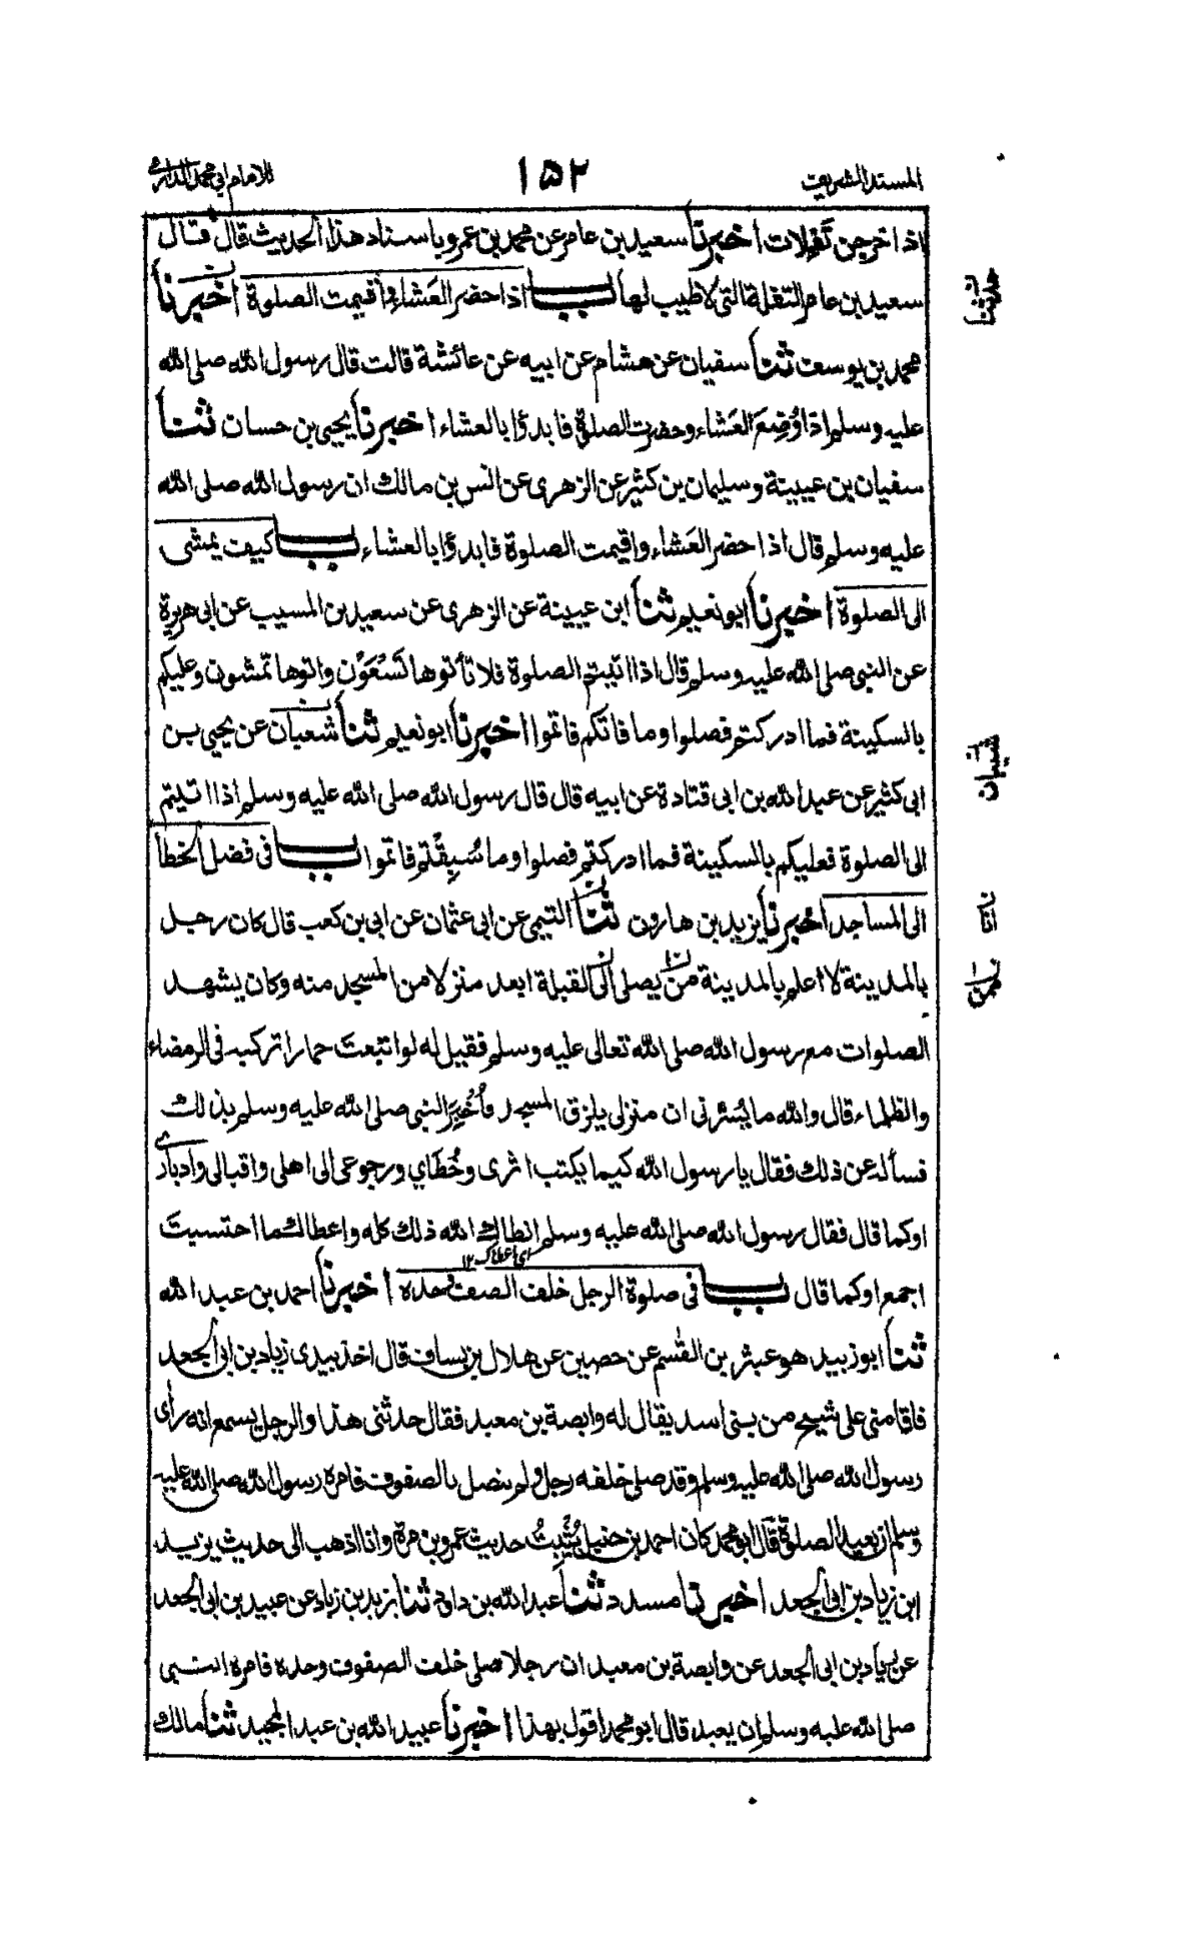 المسند الشريف
١٥٢
للامام ابي محمد الدارمي
اذا خرجن تَفِلات اخبرنا سعيد بن عامر عن محمد بن عمرو باسناد هذا الحديث قال قال
سعيد بن عامر التفلة التى لا طيب لها باب اذا حضر العَشاء واقيمت الصلوة اخبرنا
حدثنا
محمد بن يوسف ثنا سفيان عن هشام عن ابيه عن عائشة قالت قال رسول الله صلى الله
عليه وسلم اذا وُضِعَ العَشاء وحضرت الصلوة فابدؤا بالعشاء اخبرنا يحيى بن حسان ثنا
سفيان بن عيينة وسليمان بن كثير عن الزهرى عن انس بن مالك ان رسول الله صلى الله
عليه وسلم قال اذا حضر العَشاء واقيمت الصلوة فابدؤا بالعشاء باب كيف يمشى
الى الصلوة اخبرنا ابو نعيم ثنا ابن عيينة عن الزهرى عن سعيد بن المسيب عن ابى هريرة
عن النبى صلى الله عليه وسلم قال اذا اتيتم الصلوة فلا تأتوها تَسْعَوْن واتوها تمشون وعليكم
بالسكينة فما ادركتم فصلوا وما فاتكم فاتموا اخبرنا ابو نعيم ثنا شعبان عن يحيى بن
شيبان
ابى كثير عن عبد الله بن ابى قتادة عن ابيه قال قال رسول الله صلى الله عليه وسلم اذا اتيتم
الى الصلوة فعليكم بالسكينة فما ادركتم فصلوا وما سُبِقْتم فاتموا باب فى فضل الخطا
الى المساجد اخبرنا يزيد بن هارون ثنا التيمى عن ابى عثمان عن ابى بن كعب قال كان رجل
انا
بالمدينة لا اعلم بالمدينة من يصلى الى القبلة ابعد منزلا من المسجد منه وكان يشهد
ممن
الصلوات مع رسول الله صلى الله تعالى عليه وسلم فقيل له لو ابتعت حمارا تركبه فى الرمضاء
والظلماء قال والله ما يَسُرّنى ان منزلى بلزق المسجد فأُخْبِرَ النبى صلى الله عليه وسلم بذلك
فسأله عن ذلك فقال يا رسول الله كيما يكتب اثرى وخُطَاي ورجوعى الى اهلى واقبالى وادبارى
او كما قال فقال رسول الله صلى الله عليه وسلم انطاك الله ذلك كله واعطاك ما احتسبتَ
اى اعطاك ١٢
اجمع او كما قال باب فى صلوة الرجل خلف الصف وحده اخبرنا احمد بن عبد الله
ثنا ابو زبيد هو عبثر بن القٰسم عن حصين عن هلال بن يساف قال اخذ بيدى زياد بن ابى الجعد
فاقامنى على شيخ من بنى اسد يقال له وابصة بن معبد فقال حدثنى هذا والرجل يسمع انه رأى
رسول الله صلى الله عليه وسلم وقد صلى خلفه رجل ولم يتصل بالصفوف فامره رسول الله صلى الله عليه
وسلم ان يعيد الصلوة قال ابو محمد كان احمد بن حنبل يُثْبِتُ حديث عمرو بن مرة وانا اذهب الى حديث يزيد
ابن زياد بن ابى الجعد اخبرنا مسدد ثنا عبد الله بن داود ثنا يزيد بن زياد عن عبيد بن ابى الجعد
عن زياد بن ابى الجعد عن وابصة بن معبد ان رجلا صلى خلف الصفوف وحده فامره النبى
صلى الله عليه وسلم ان يعيد قال ابو محمد اقول بهذا اخبرنا عبيد الله بن عبد المجيد ثنا مالك